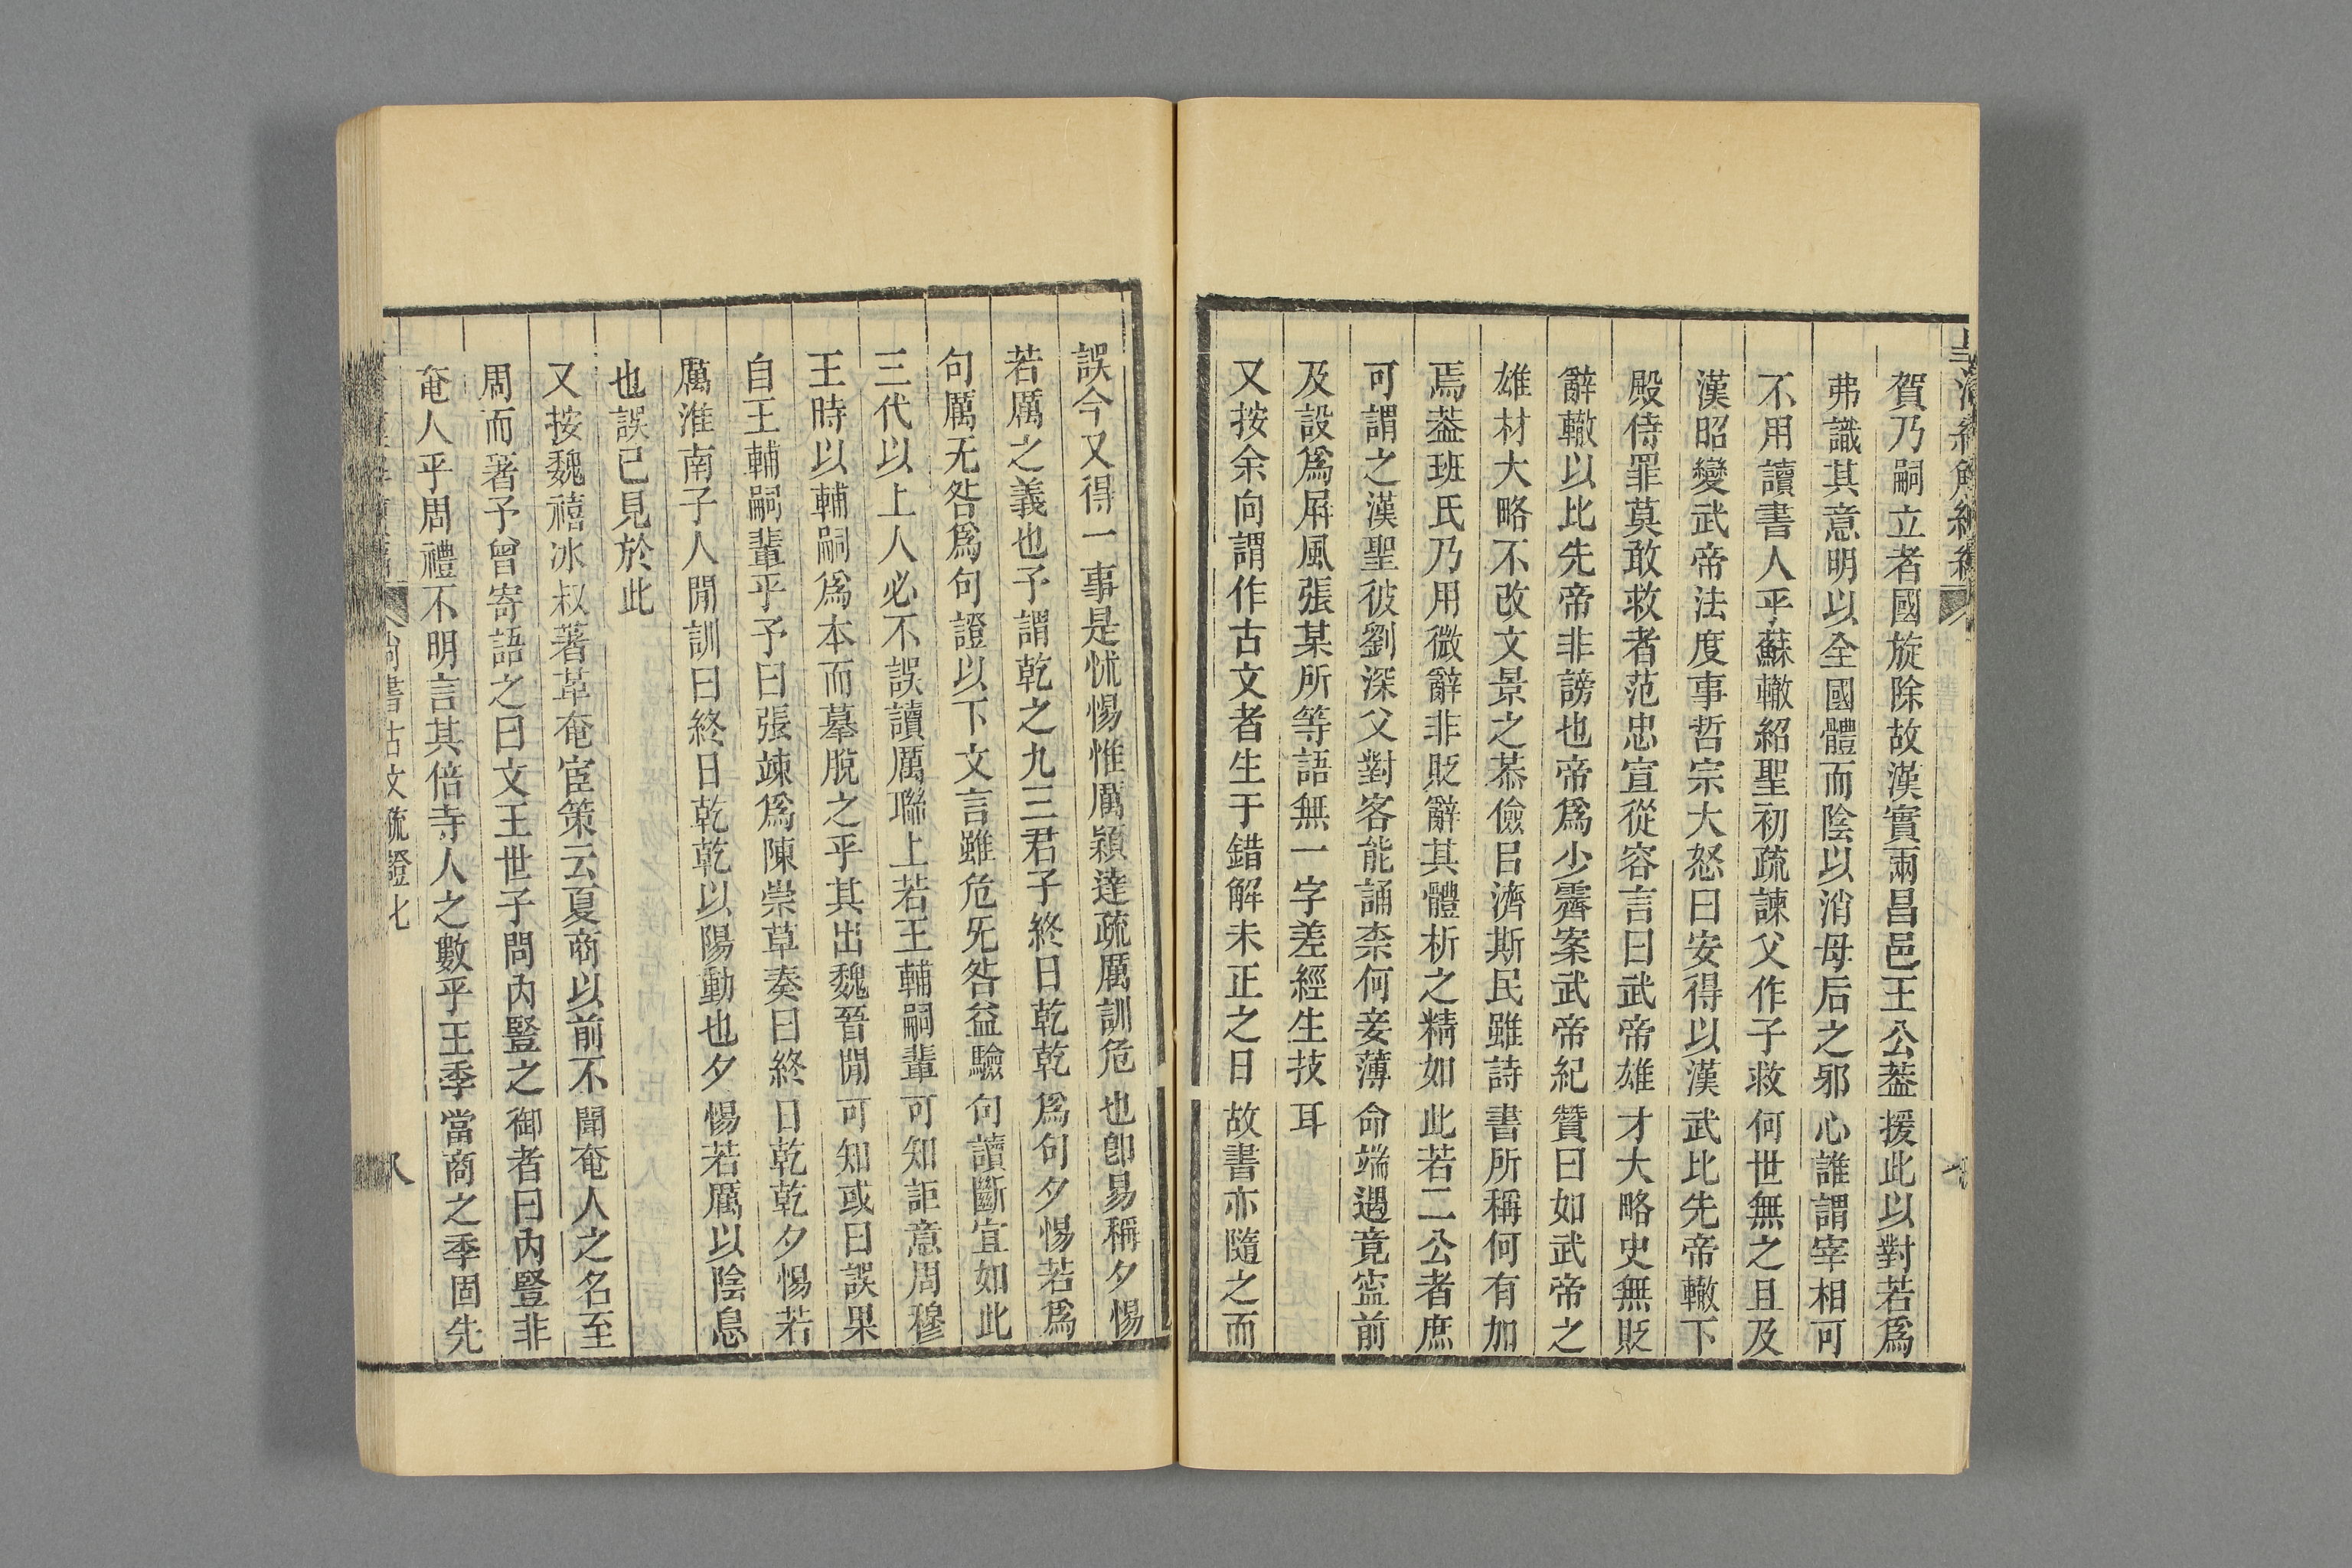 皇清經解續編
賀乃嗣立者國旋除故漢實兩昌邑王公葢援此以對若爲
弗識其意明以全國體而陰以消母后之邪心誰謂宰相可
不用讀書人乎蘇轍紹聖初疏諫父作子救何世無之且及
漢昭變武帝法度事哲宗大怒曰安得以漢武比先帝轍下
殿侍罪莫敢救者范忠宣從容言曰武帝雄才大略史無貶
辭轍以比先帝非謗也帝爲少霽案武帝紀贊曰如武帝之
雄材大略不改文景之恭儉㠯濟斯民雖詩書所稱何有加
焉葢班氏乃用微辭非貶辭其體析之精如此若二公者庶
可謂之漢聖彼劉深父對客能誦柰何妾薄命端遇竟寍前
及設爲屏風張某所等語無一字差經生技耳
又按余向謂作古文者生于錯解未正之日故書亦隨之而
誤今又得一事是怵惕惟厲穎達疏厲訓危也卽易稱夕惕
若厲之義也予謂乾之九三君子終日乾乾爲句夕惕若爲
句厲无咎爲句證以下文言雖危旡咎益驗句讀斷宜如此
三代以上人必不誤讀厲聮上若王輔嗣輩可知詎意周穆
王時以輔嗣爲本而摹脫之乎其出魏晉閒可知或曰誤果
自王輔嗣輩乎予曰張竦爲陳崇草奏曰終日乾乾夕惕若
厲淮南子人閒訓曰終日乾乾以陽動也夕惕若厲以陰息
也誤已見於此
又按魏禧冰叔著革奄宦策云夏商以前不聞奄人之名至
周而著予曾寄語之曰文王世子問內豎之御者曰內豎非
奄人乎周禮不明言其倍寺人之數乎王季當商之季固先
尚書古文疏證七
八